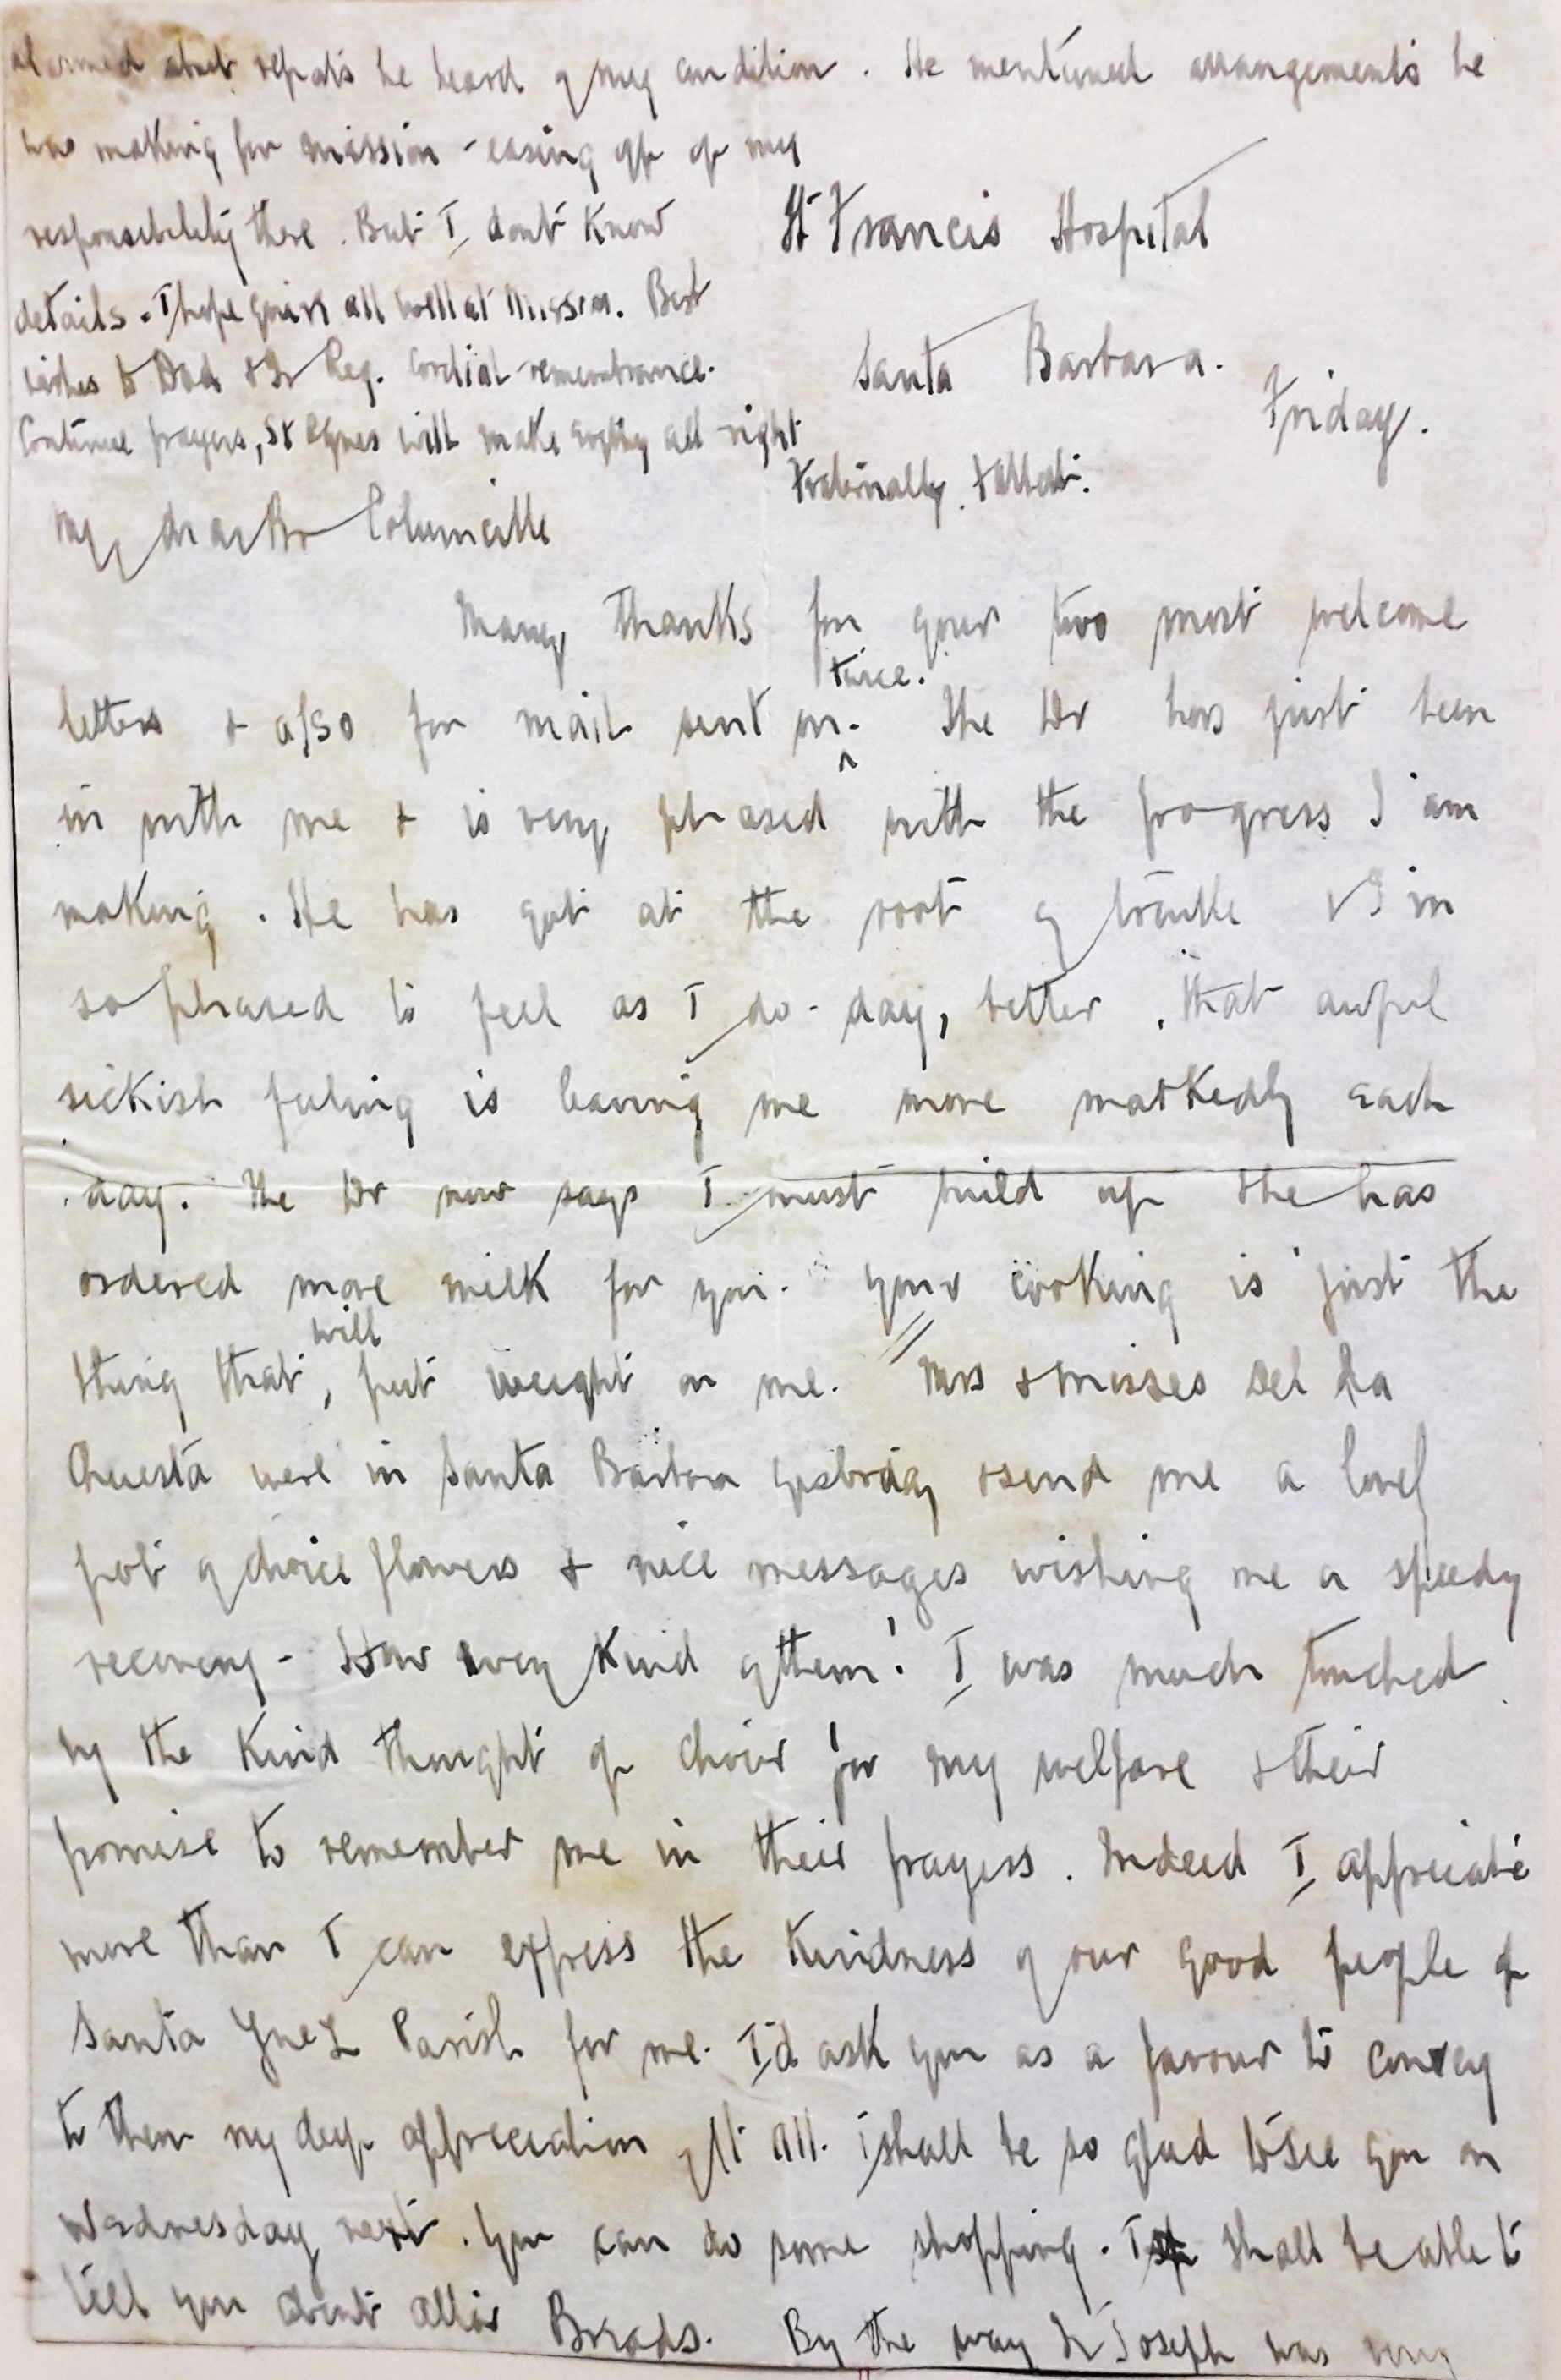 St Francis Hospital
Santa Barbara.
Friday.
My dear Br Columcille
Many thanks for your two most welcome
letters & also for mail sent on twice. The Dr has just been
in with me & is very pleased with the progress I am
making. He has got at the root of trouble & I'm
so pleased to feel as I do-day, better. That awful
sickish feeling is leaving me more markedly each
day. The Dr now says I must build up & he has
ordered more milk for you. Your cooking is just the
thing that will put weight on me. Mrs & Misses del la
Questa were in Santa Barbara yesterday & send me a lovely
pot of choice flowers & nice messages wishing me a speedy
recovery - How very kind of them! I was much touched
by the kind thought of choir for my welfare & their
promise to remember me in their prayers. Indeed I appreciate
more than I can express the kindness of our good people of
Santa Ynez Parish for me. I'd ask you as a favour to convey
to them my deep appreciation of it all. I shall be so glad to see you on
Wednesday next. You can do some shopping. I shall be able to
tell you about Broads. By the way Fr Joseph was very
alarmed about reports he heard of my condition. He mentioned arrangements he
was making for mission - easing off of my
responsibility there. But I don't know
details. I hope you're all well at Mission. Best
wishes to Dad & Fr Reg. Cordial remembrance.
Continue prayers, St Agnes will make everything all right
Fraternally,